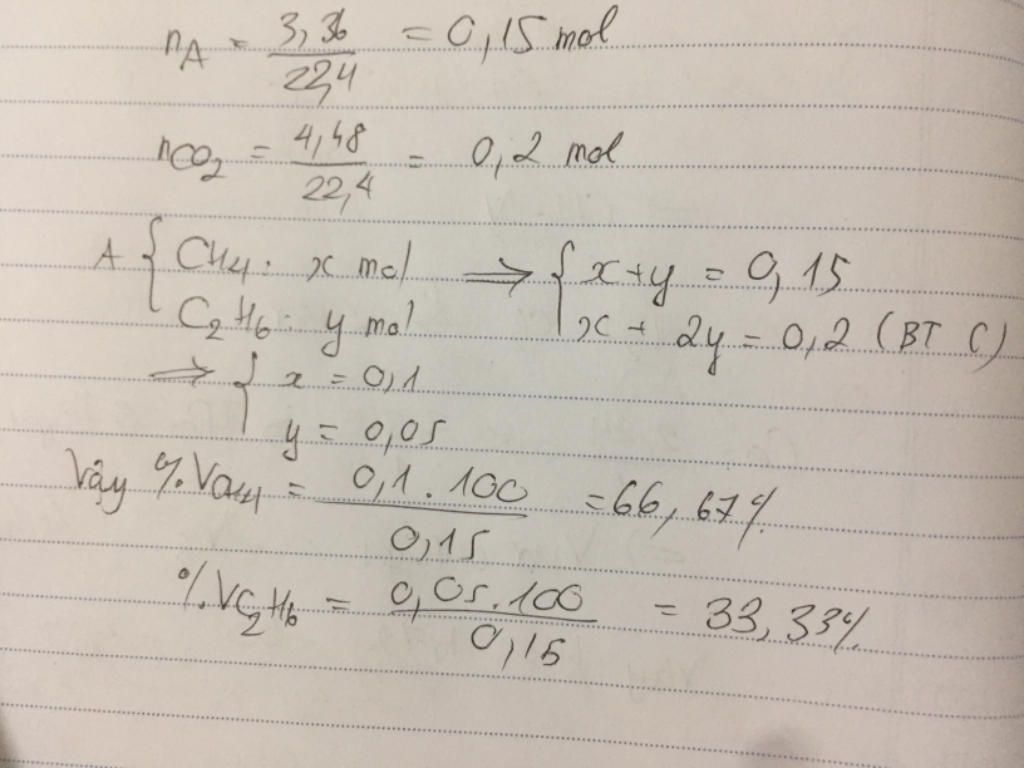 nA = 3,36/22,4 = 0,15 mol
nCO2 = 4,48/22,4 = 0,2 mol
A { CH4: x mol ⟹ { x+y = 0,15
C2H6: y mol x + 2y = 0,2 (BT C)
⟹ { x = 0,1
y = 0,05
Vậy %VCH4 = 0,1.100/0,15 = 66,67%
%VC2H6 = 0,05.100/0,15 = 33,33%